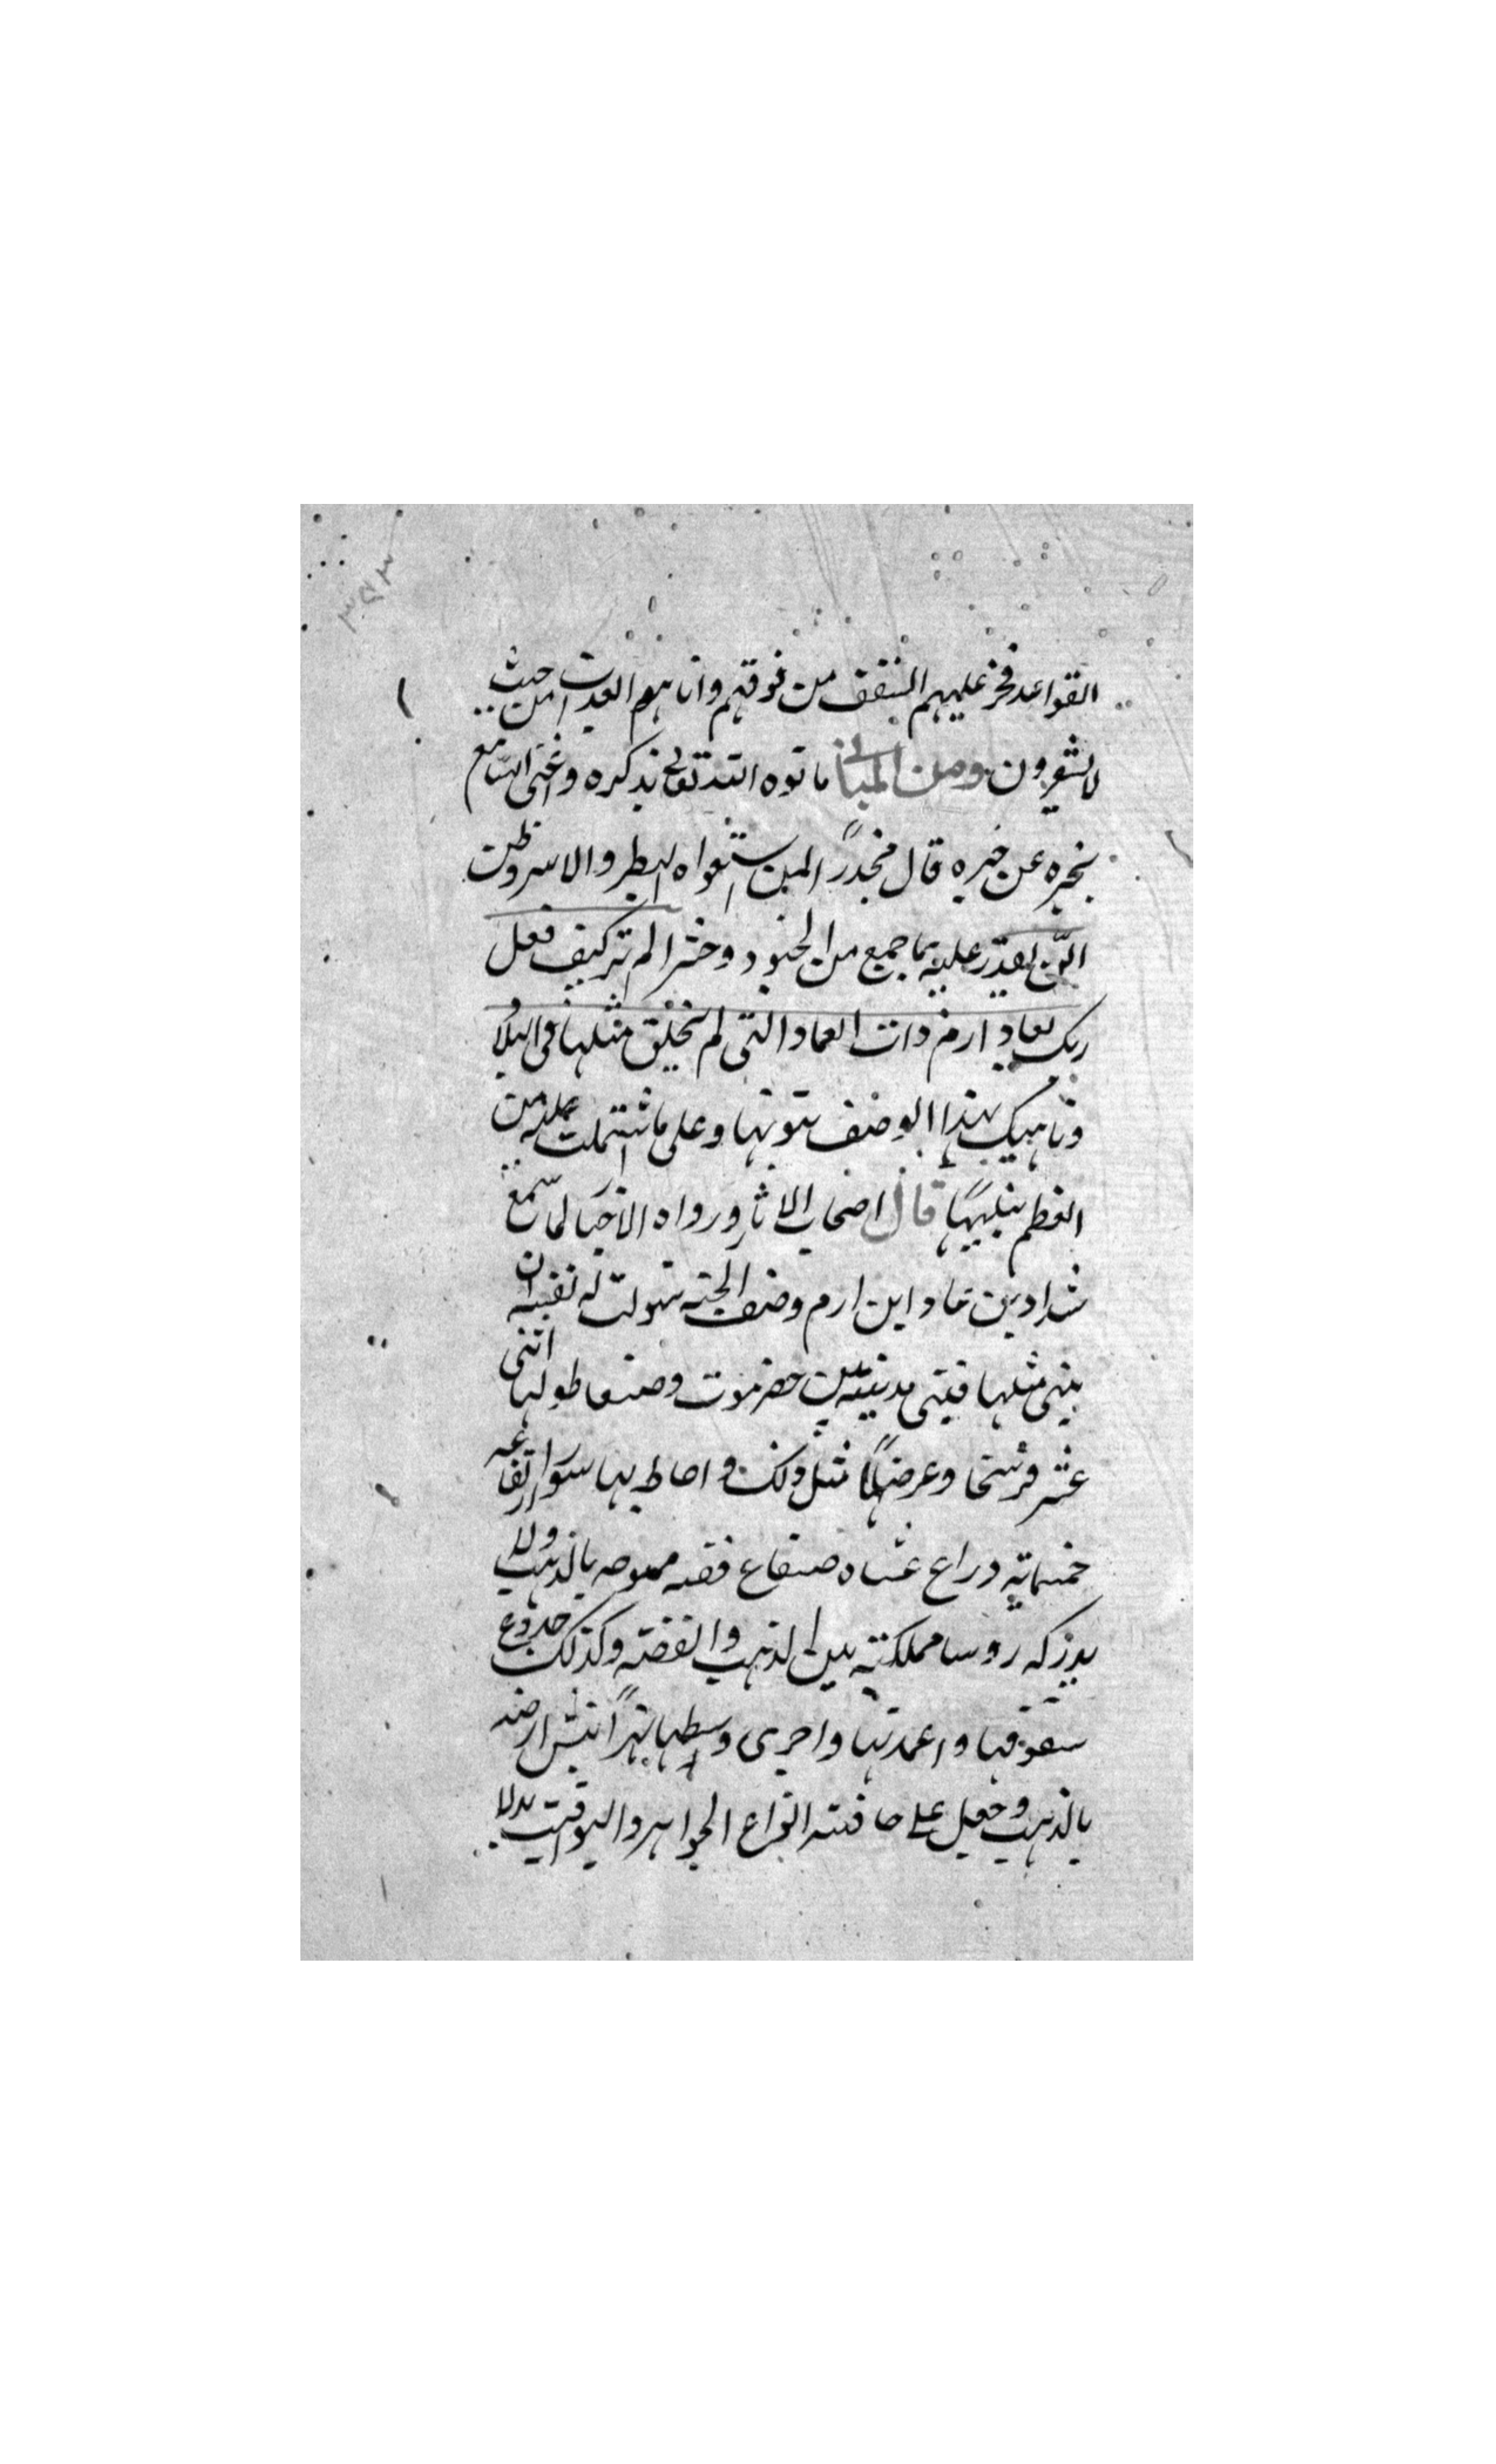 ٣٥٣
القواعد فخر عليهم السقف من فوقهم واتاهم العذاب من حيث
لا يشعرون ومن المباني ما نوه الله تعالى بذكره واغنى السامع
بخبره عن خبره قال محذرًا لمن استهواه البطر والاشر وظن
ان لن يقدر عليه بما جمع من الجنود وحشر الم تر كيف فعل
ربك بعاد ارم ذات العماد التى لم يخلق مثلها فى البلاد
وناهيك بهذا الوصف تنويها وعلى ما اشتملت عليه من
العظم تنبيهًا قال اصحاب الاثار ورواه الاخبار لما سمع
شداد بن عاد ابن ارم وصف الجنه سولت له نفسه ان
يبنى مثلها فبنى مدينة بين حضرموت وصنعا طولها اثنى
عشر فرسخا وعرضها مثل ذلك واحاط بها سورا ارتفاعه
خمسمايه ذراع غشاه صفاع فضه مموهه بالذهب ولا
يدركه روسا مملكته من الذهب والفضة وكذلك جذوع
سقوفها واعمدتها واجرى وسطها نهرًا نقش ارضه
بالذهب وجعل على حافته انواع الجواهر واليواقيت بدلا